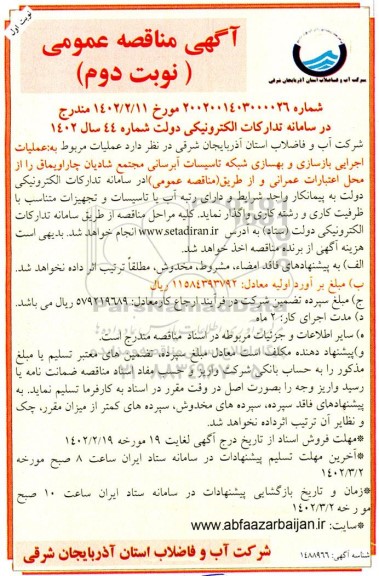 نوبت اول
آگهی مناقصه عمومی
( نوبت دوم)
شرکت آب و فاضلاب استان آذربایجان شرقی
شماره ۲۰۰۲۰۰۱۴۰۳۰۰۰۰۲۶ مورخ ۱۴۰۲/۲/۱۱ مندرج
در سامانه تدارکات الکترونیکی دولت شماره ۴۴ سال ۱۴۰۲
شرکت آب و فاضلاب استان آذربایجان شرقی در نظر دارد عملیات مربوط به:عملیات
اجرایی بازسازی و بهسازی شبکه تاسیسات آبرسانی مجتمع شادیان چاراویماق را از
محل اعتبارات عمرانی و از طریق(مناقصه عمومی)در سامانه تدارکات الکترونیکی
دولت به پیمانکار واجد شرایط و دارای رتبه آب یا تاسیسات و تجهیزات متناسب با
ظرفیت کاری و رشته کاری واگذار نماید. کلیه مراحل مناقصه از طریق سامانه تدارکات
الکترونیکی دولت (ستاد) به آدرس www.setadiran.ir انجام خواهد شد. بدیهی است
هزینه آگهی از برنده مناقصه اخذ خواهد شد.
الف) به پیشنهادهای فاقد امضاء، مشروط، مخدوش، مطلقاً ترتیب اثر داده نخواهد شد.
ب) مبلغ بر آورد اولیه معادل: ۱۱۵۸۴۳۹۳۷۹۲ ریال
ج) مبلغ سپرده تضمین شرکت در فرآیند ارجاع کارمعادل: ۵۷۹۲۱۹۶۸۹ ریال می باشد.
د) مدت اجرای کار: ۲ ماه
ه) سایر اطلاعات و جزئیات مربوطه در اسناد مناقصه مندرج است.
و)پیشنهاد دهنده مکلف است معادل مبلغ سپرده، تضمین های معتبر تسلیم یا مبلغ
مذکور را به حساب بانکی شرکت واریز و حسب مفاد اسناد مناقصه ضمانت نامه یا
رسید واریز وجه را بصورت اصل در وقت مقرر در اسناد به کارفرما تسلیم نماید. به
پیشنهادهای فاقد سپرده، سپرده های مخدوش، سپرده های کمتر از میزان مقرر، چک
و نظایر آن ترتیب اثرداده نخواهد شد.
*مهلت فروش اسناد از تاریخ درج آگهی لغایت ۱۹ مورخه ۱۴۰۲/۲/۱۹
*آخرین مهلت تسلیم پیشنهادات در سامانه ستاد ایران ساعت ۸ صبح مورخه
۱۴۰۲/۳/۲
*زمان و تاریخ بازگشایی پیشنهادات در سامانه ستاد ایران ساعت ۱۰ صبح
مورخه ۱۴۰۲/۳/۲
*سایت: www.abfaazarbaijan.ir
شناسه آگهی: ۱۴۸۸۹۶۶
شرکت آب و فاضلاب استان آذربایجان شرقی